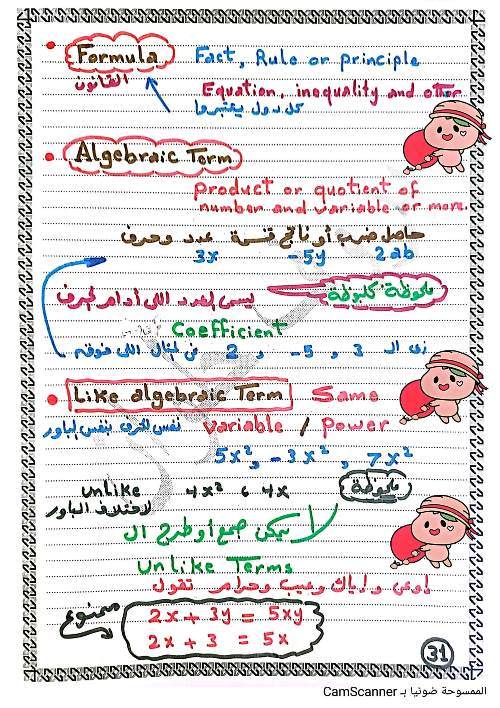 Formula Fact, Rule or principle
القانون Equation, inequality and other
كل دول يعتبروا
Algebraic Term
product or quotient of
number and variable or more.
حاصل ضرب أو ناتج قسمة عدد وحرف
3x -5y 2ab
ملحوظة كلبوظة
يسمى العدد اللى أدام الحرف
Coefficient
زى ال 3 , -5 , 2 فى المثال اللى فوق
Like algebraic Term Same
نفس الحرف بنفس الباور variable / power
5x², -3x², 7x²
unlike 4x² 6 4x ملحوظة
لاختلاف الباور
لا يمكن جمع أو طرح ال
Unlike Terms
اوعى واياك وعيب وحرام تقول
ممنوع
2x + 3y = 5xy
2x + 3 = 5x
31
الممسوحة ضوئيا بـ CamScanner